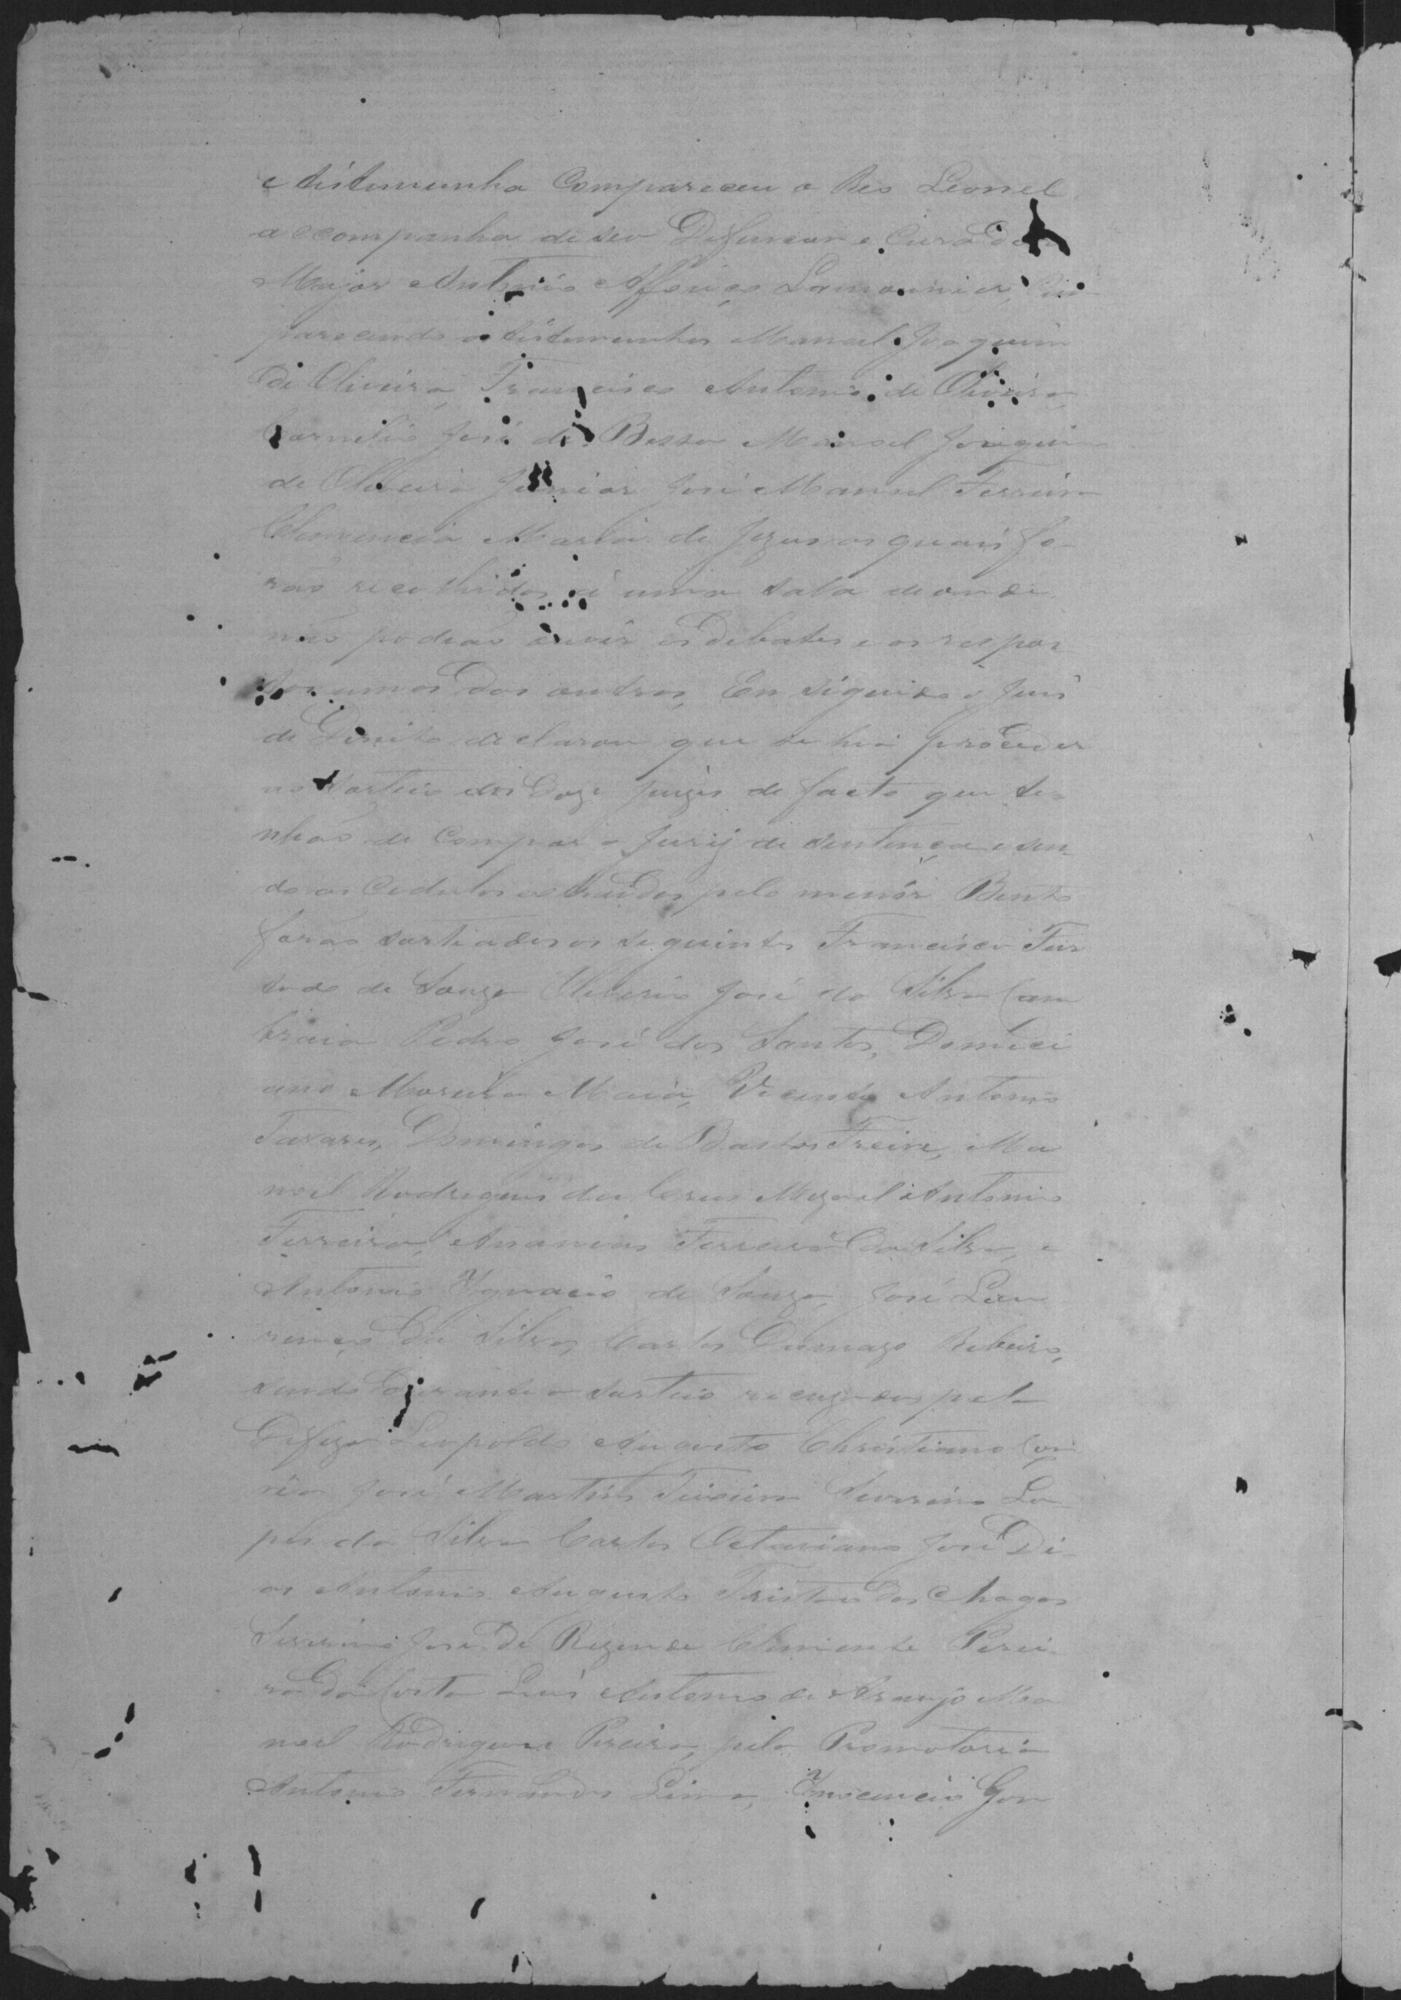 e testemunha Compareceu o Reo Leonel
acompanha de seo Defensor e Curador
Major Antonio Affonço Lamounier, Com
parecendo as testemunhas Manoel Joaquim
de Oliveira, Francisco Antonio de Oliveira,
Cornelio José de Bessa Manoel Joaquim
de Oliveira Junior José Manoel Ferreira
Clemencia Maria de Jezus os quais fo-
rão recolhidos á uma sala de onde
não podião ouvir os debates e as respos
dos outros, Em siguida o Juis
de Direito declarou que se hia proceder
ao sorteio dos Doze Juizes de facto que ti-
nhão de compor o Jury de sentença e sen-
do as Cedulas estraidas pelo menór Bento
forão sortiados os siguintes Francisco Fur
tado de Souza Oliverio José da Silva Cam
braia Pedro José dos Santos, Domici
ano Moreira Maia, Vicente Antonio
Tavares, Domingos de Bastos Freire, Ma
noel Rodrigues da Crus Migoel Antonio
Ferreira, Ananias Ferreira da Silva, e
Antonio Ygnacio de Souza, José Lou
renço da Silva, Carlos Damazo Ribeiro,
sendo durante o sorteio recuzados pela
Defeza Leopoldo Augusto Christiano Cor
rêa José Martins Teixeira Severino Lo
pes da Silva Carlos Octaviano José Di
as Antonio Augusto Tristão das Chagas
Severino José de Rezende Clemente Perei
ra da Costa Luis Antonio de Araujo Ma
noel Rodrigues Pereira, pela Promotoria
Antonio Fernandes Lima, Ynocencio Gon